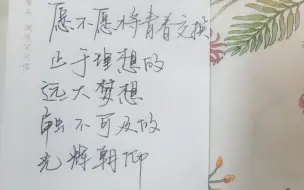 愿不愿将青春交换
止于理想的
远大梦想
触不可及的
光将朝仰